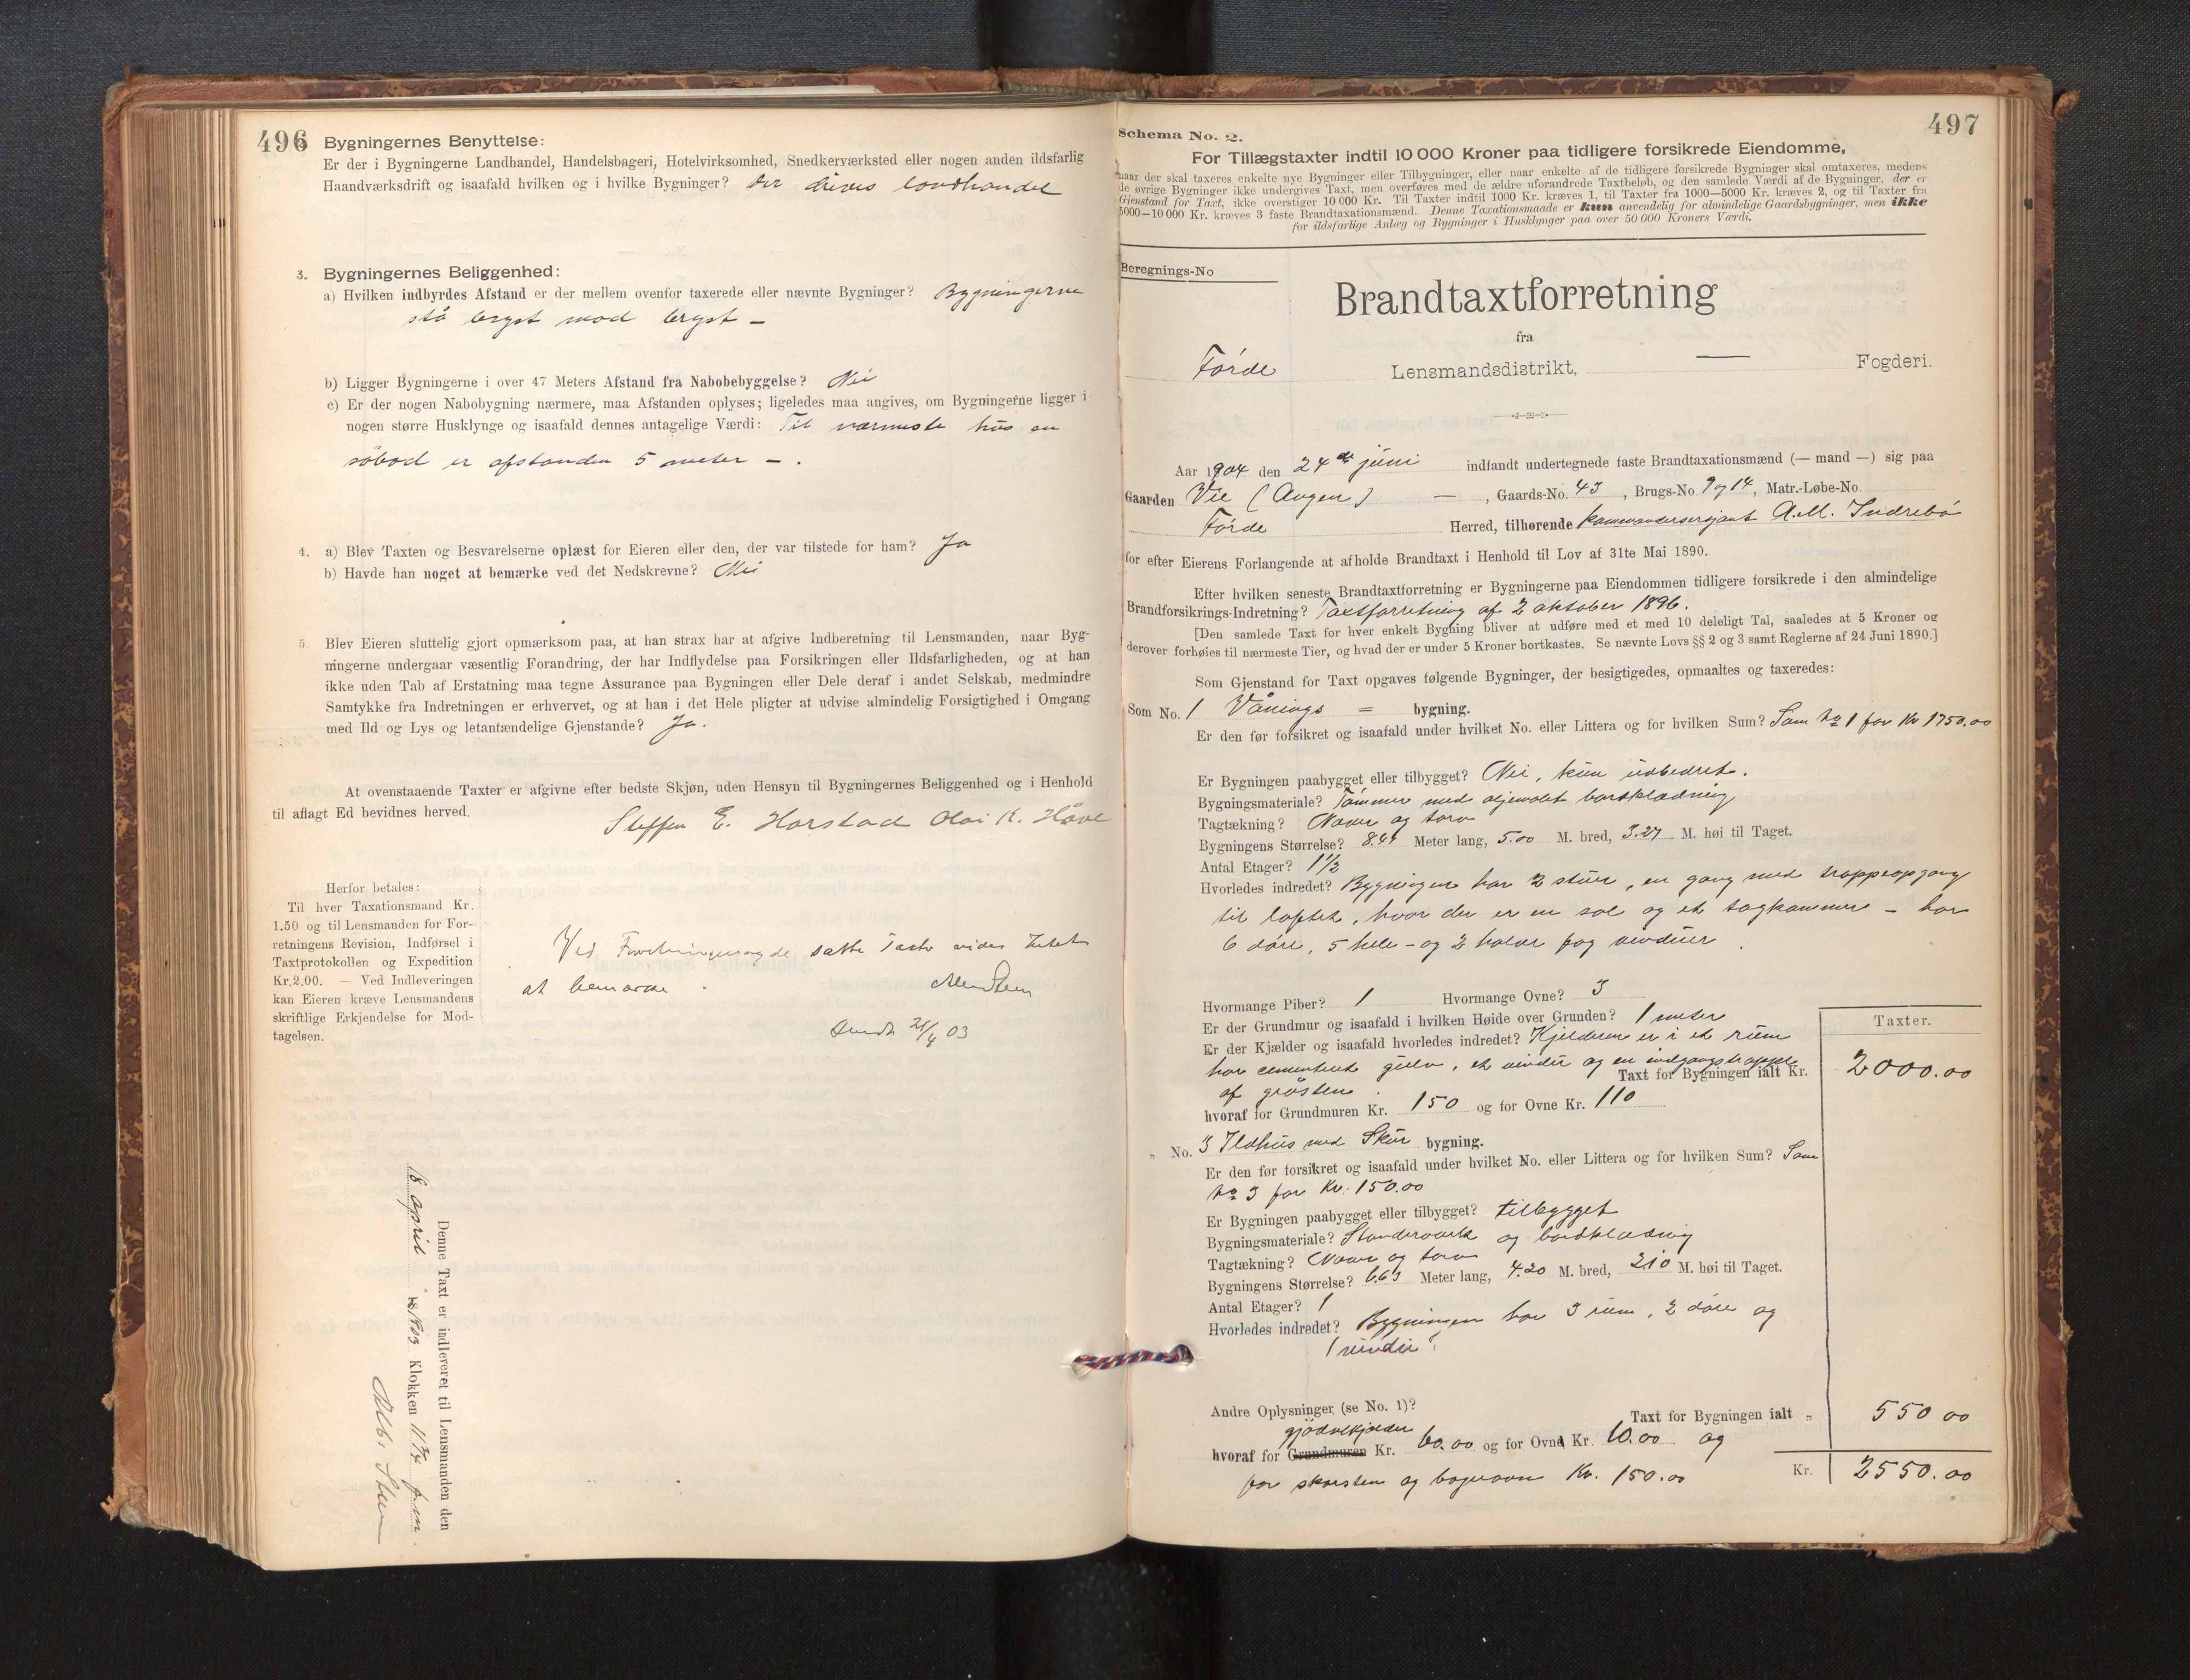 496
Bygningernes Benyttelse:
Er der i Bygningerne Landhandel, Handelsbageri, Hotelvirksomhed, Snedkerværksted eller nogen anden ildsfarlig
Haandværksdrift og isaafald hvilken og i hvilke Bygninger? Der drives landhandel
3. Bygningernes Beliggenhed:
a) Hvilken indbyrdes Afstand er der mellem ovenfor taxerede eller nævnte Bygninger? Bygningerne
stå bryst mod bryst –
b) Ligger Bygningerne i over 47 Meters Afstand fra Nabobebyggelse? Nei
c) Er der nogen Nabobygning nærmere, maa Afstanden oplyses; ligeledes maa angives, om Bygningerne ligger i
nogen større Husklynge og isaafald dennes antagelige Værdi: Til nærmeste hus en
söbod er afstanden 5 meter – .
4. a) Blev Taxten og Besvarelserne oplæst for Eieren eller den, der var tilstede for ham? Ja
b) Havde han noget at bemærke ved det Nedskrevne? Nei
5. Blev Eieren sluttelig gjort opmærksom paa, at han strax har at afgive Indberetning til Lensmanden, naar Byg-
ningerne undergaar væsentlig Forandring, der har Indflydelse paa Forsikringen eller Ildsfarligheden, og at han
ikke uden Tab af Erstatning maa tegne Assurance paa Bygningen eller Dele deraf i andet Selskab, medmindre
Samtykke fra Indretningen er erhvervet, og at han i det Hele pligter at udvise almindelig Forsigtighed i Omgang
med Ild og Lys og letantændelige Gjenstande? Ja.
At ovenstaaende Taxter er afgivne efter bedste Skjøn, uden Hensyn til Bygningernes Beliggenhed og i Henhold
til aflagt Ed bevidnes herved.
Steffen E. Horstad Olai K. Håve
Herfor betales:
Til hver Taxationsmand Kr.
1.50 og til Lensmanden for For-
retningens Revision, Indførsel i
Taxtprotokollen og Expedition
Kr. 2.00. — Ved Indleveringen
kan Eieren kræve Lensmandens
skriftlige Erkjendelse for Mod-
tagelsen.
Ved satte Taxt vides Intet
at bemærke.
21/4 03
Denne Taxt er indleveret til Lensmanden den
18 april 1903 Klokken 11 3/4 fm
497
Schema No. 2.
For Tillægstaxter indtil 10 000 Kroner paa tidligere forsikrede Eiendomme,
naar der skal taxeres enkelte nye Bygninger eller Tilbygninger, eller naar enkelte af de tidligere forsikrede Bygninger skal omtaxeres, medens
de øvrige Bygninger ikke undergives Taxt, men overføres med de ældre uforandrede Taxtbeløb, og den samlede Værdi af de Bygninger, der er
Gjenstand for Taxt, ikke overstiger 10 000 Kr. Til Taxter indtil 1000 Kr. kræves 1, til Taxter fra 1000—5000 Kr. kræves 2, og til Taxter fra
5000—10 000 Kr. kræves 3 faste Brandtaxationsmænd. Denne Taxationsmaade er kun anvendelig for almindelige Gaardsbygninger, men ikke
for ildsfarlige Anlæg og Bygninger i Husklynger paa over 50 000 Kroners Værdi.
Beregnings-No
Brandtaxtforretning
fra
Förde Lensmandsdistrikt, — Fogderi.
Aar 1904 den 24de juni indfandt undertegnede faste Brandtaxationsmænd (— mand —) sig paa
Gaarden Vie (Angen) — , Gaards-No. 43 , Brugs-No. 9 og 14, Matr.-Løbe-No.
Förde Herred, tilhørende kommandersersjant A.M. Indrebö
for efter Eierens Forlangende at afholde Brandtaxt i Henhold til Lov af 31te Mai 1890.
Efter hvilken seneste Brandtaxtforretning er Bygningerne paa Eiendommen tidligere forsikrede i den almindelige
Brandforsikrings-Indretning? Taxtforretning af 2 oktober 1896.
[Den samlede Taxt for hver enkelt Bygning bliver at udføre med et med 10 deleligt Tal, saaledes at 5 Kroner og
derover forhøies til nærmeste Tier, og hvad der er under 5 Kroner bortkastes. Se nævnte Lovs §§ 2 og 3 samt Reglerne af 24 Juni 1890.]
Som Gjenstand for Taxt opgaves følgende Bygninger, der besigtigedes, opmaaltes og taxeredes:
Som No. 1 Vånings = bygning.
Er den før forsikret og isaafald under hvilket No. eller Littera og for hvilken Sum? Som No 1 for Kr 1750.00
Er Bygningen paabygget eller tilbygget? Nei, kun udbedret.
Bygningsmateriale? Tömmer med oljemalt bordklædning
Tagtækning? Næver og torv
Bygningens Størrelse? 8.41 Meter lang, 5.00 M. bred, 3.27 M. høi til Taget.
Antal Etager? 1 1/2
Hvorledes indredet? Bygningen har 2 stuer, en gang med trappeopgang
til loftet, hvor der er en sal og et tagkammer – har
6 döre, 5 hele- og 2 halve fag vinduer.
Hvormange Piber? 1 Hvormange Ovne? 3
Er der Grundmur og isaafald i hvilken Høide over Grunden? 1 meter
Er der Kjælder og isaafald hvorledes indredet? Kjelderen er i et rum
har cementeret gulv, et vindu og en indgangstrappe
af gråsten.
Taxt for Bygningen ialt Kr.
Taxter.
2000.00
hvoraf for Grundmuren Kr. 150 og for Ovne Kr. 110
„ No. 3 Ildhus med Skur bygning.
Er den før forsikret og isaafald under hvilket No. eller Littera og for hvilken Sum? Som
No 3 for Kr. 150.00
Er Bygningen paabygget eller tilbygget? tilbygget
Bygningsmateriale? Standerværk og bordklædning
Tagtækning? Næver og torv
Bygningens Størrelse? 6.63 Meter lang, 4.20 M. bred, 2.10 M. høi til Taget.
Antal Etager? 1
Hvorledes indredet? Bygningen har 3 rum, 2 döre og
1 vindu.
Andre Oplysninger (se No. 1)?
Taxt for Bygningen ialt „ 550 00
gjödselkjelder
hvoraf for Grundmuren Kr. 60.00 og for Ovne Kr. 10.00 og
for skorsten og bagerovn Kr. 150.00
Kr. 2550.00